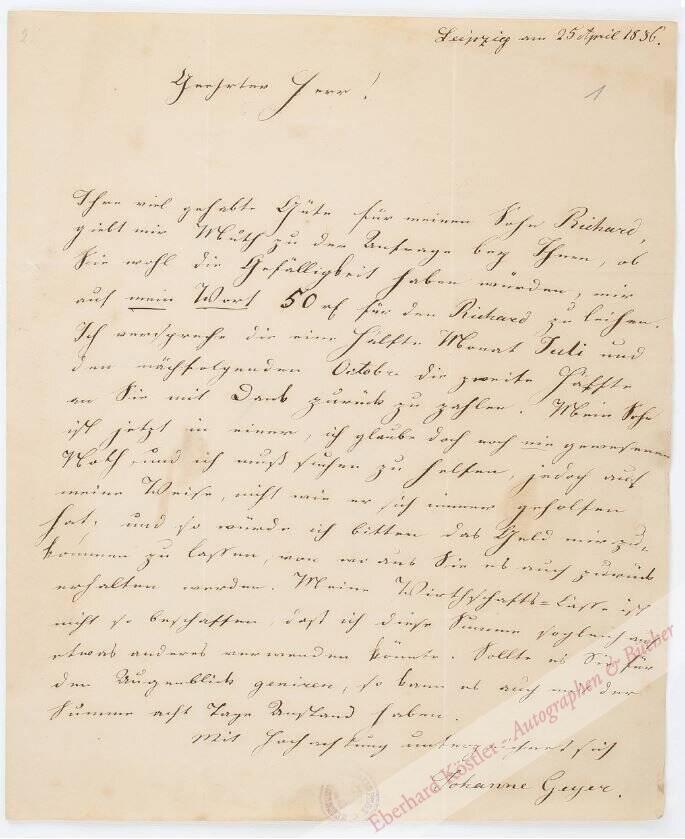 2
Leipzig am 25 April 1836.
Geehrter Herr!
1
Ihre viel gehabte Güte für meinen Sohn Richard,
giebt mir Muth zu der Anfrage bey Ihnen, ob
Sie wohl die Gefälligkeit haben würden, mir
auf mein Wort 50 rf für den Richard zu leihen.
Ich verspreche die eine Hälfte Monat Juli und
den nächstfolgenden Octobr. die zweite Hälfte
an Sie mit Dank zurück zu zahlen. Mein Sohn
ist jetzt in einer, ich glaube doch noch nie gewesenen
Noth und ich muß suchen zu helfen, jedoch auf
meine Weise, nicht wie er sich immer geholfen
hat, und so würde ich bitten das Geld mir zu-
kommen zu lassen, von wo aus Sie es auch zurück
erhalten werden. Meine Wirthschafts=Casse ist
nicht so beschaffen, daß ich diese Summe sogleich auf
etwas anderes verwenden könnte. Sollte es Sie für
den Augenblick geniren, so kann es auch mit der
Summe acht Tage Anstand haben.
Mit Hochachtung unterzeichnet sich
Johanne Geyer.
Eberhard Köstler - Autographen & Bücher